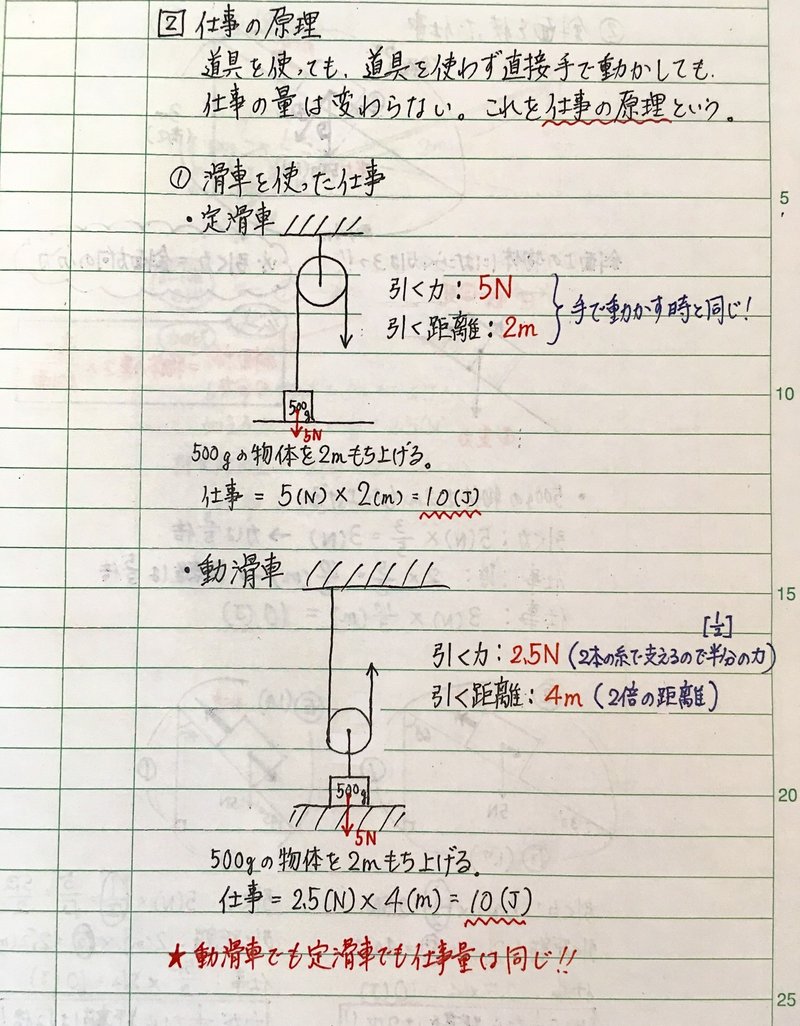 2 仕事の原理
道具を使っても、道具を使わず直接手で動かしても
仕事の量は変わらない。これを仕事の原理という。
① 滑車を使った仕事
・定滑車
引く力：5N
引く距離：2m
手で動かす時と同じ！
500g
5N
500gの物体を2mもち上げる。
仕事 = 5(N) × 2(m) = 10(J)
・動滑車
[1/2]
引く力：2.5N（2本の糸で支えるので半分の力）
引く距離：4m（2倍の距離）
500g
5N
500gの物体を2mもち上げる。
仕事 = 2.5(N) × 4(m) = 10(J)
★動滑車でも定滑車でも仕事量は同じ!!
5
10
15
20
25